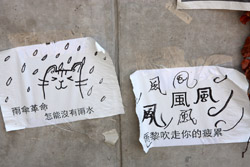 雨傘革命
怎能沒有雨水
風 風
風 風 風
風
黎吹走你的疲累